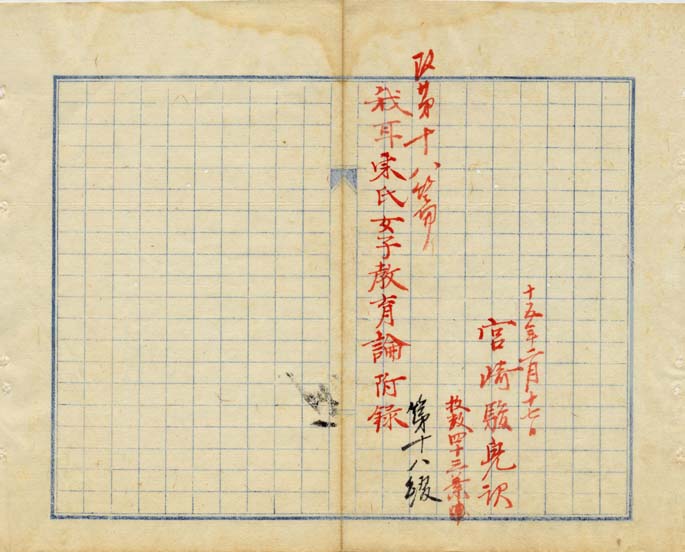 十五年二月十七日
宮崎駿兒訳
枚数四十三葉
第十八綴
第十八
耳東氏女子教育論附録